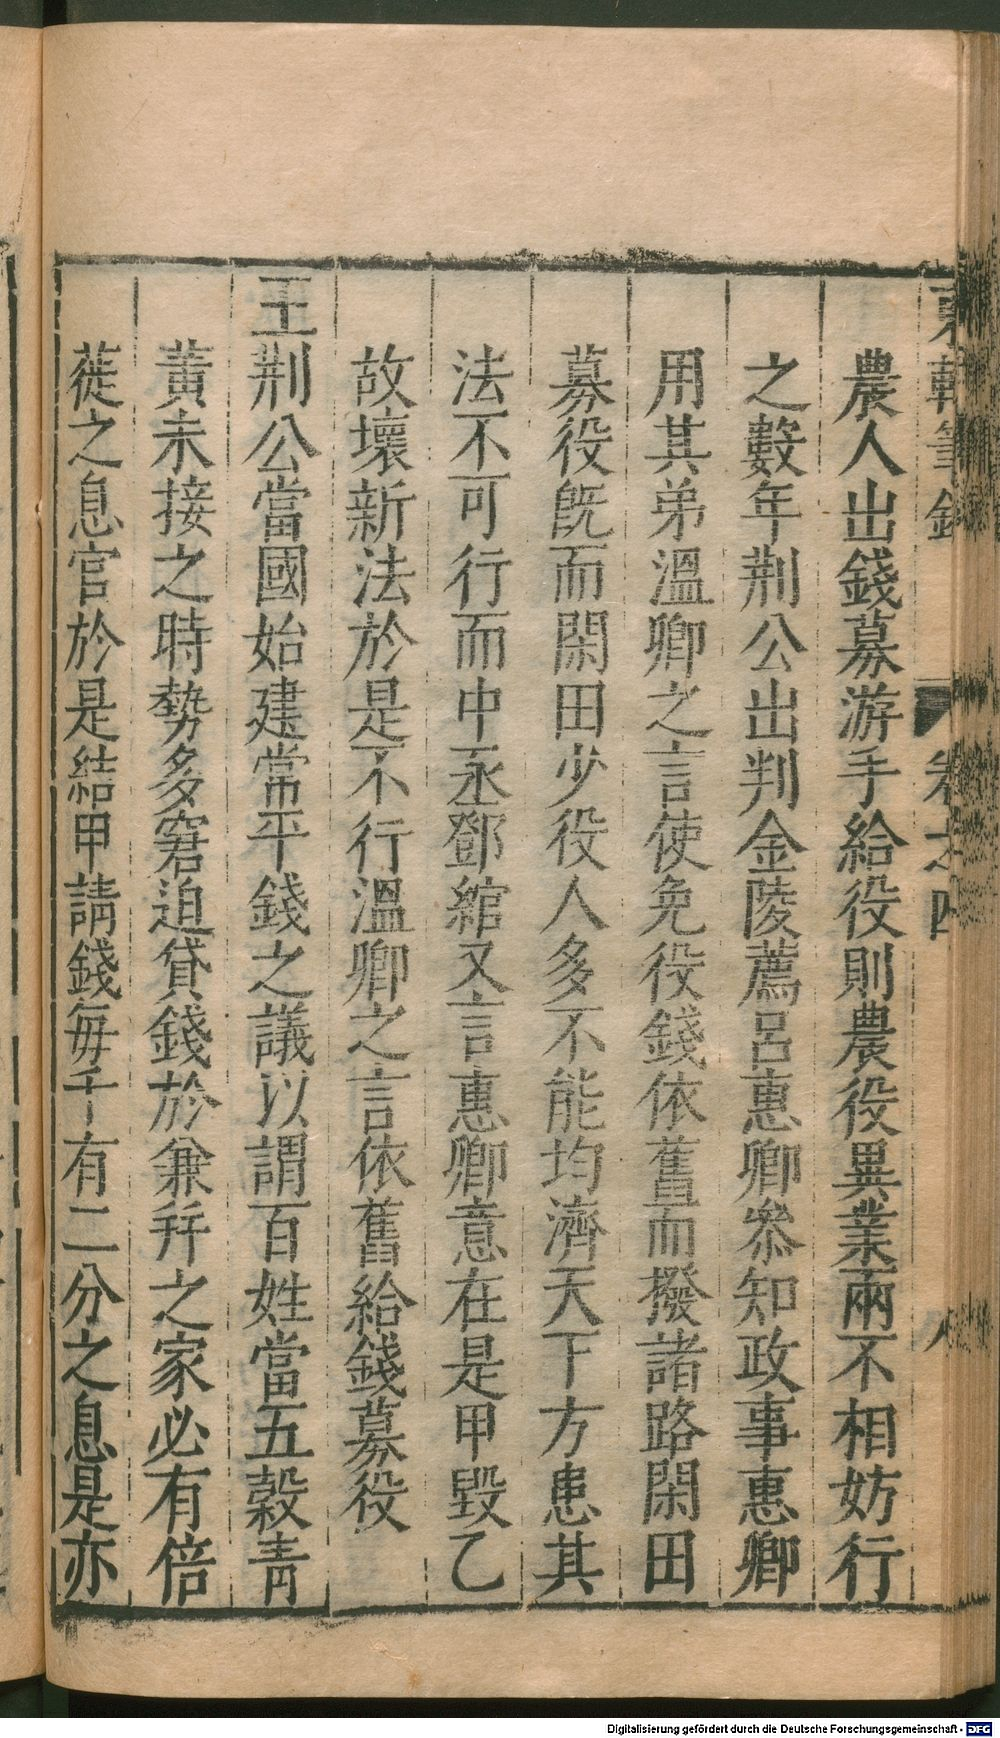 東軒筆錄 卷之四 八
農人出錢募游手給役則農役異業兩不相妨行
之數年荆公出判金陵薦呂惠卿叅知政事惠卿
用其弟溫卿之言使免役錢依舊而撥諸路閑田
募役旣而閑田少役人多不能均濟天下方患其
法不可行而中丞鄧綰又言惠卿意在是甲毀乙
故壞新法於是不行溫卿之言依舊給錢募役
王荆公當國始建常平錢之議以謂百姓當五榖青
黃未接之時勢多窘迫貸錢於兼幷之家必有倍
蓰之息官於是結甲請錢每千有二分之息是亦
Digitalisierung gefördert durch die Deutsche Forschungsgemeinschaft - DFG